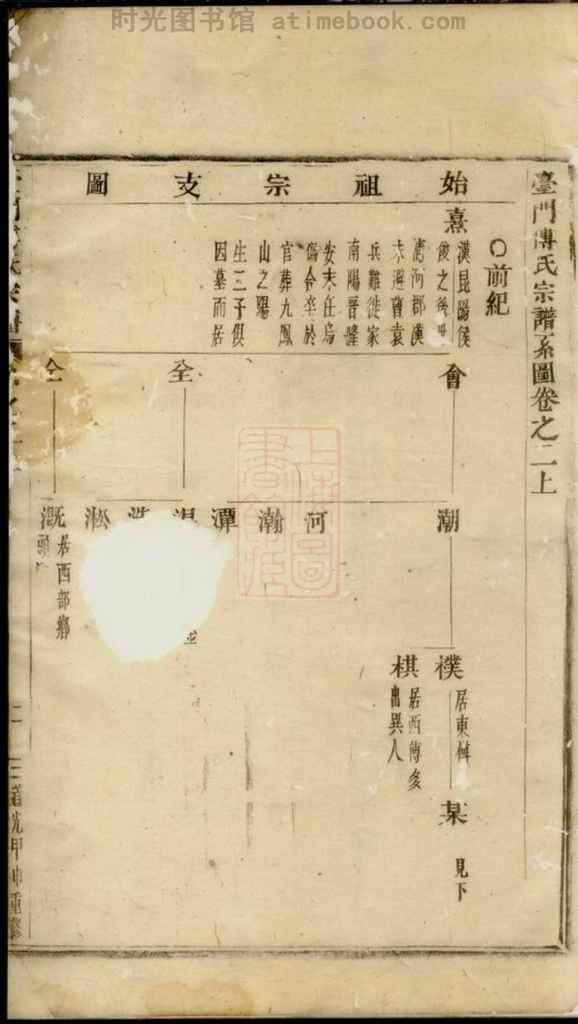 时光图书馆 atimebook.com
臺門傅氏宗譜系圖卷之二上
○前紀
始祖宗支圖
熹
漢昆陽侯
俊之後世
清河郡漢
末避曹袁
兵難徙家
南陽晉隆
安末任烏
傷令卒於
官葬九鳳
山之陽
生三子俱
因墓而居
會
全
仝
潮
河
瀚
潭
淞
溉
居西部鄉
樸
居東傅
棋
居西傅多
出異人
某
見下
上海圖書館藏
二
道光甲申重修